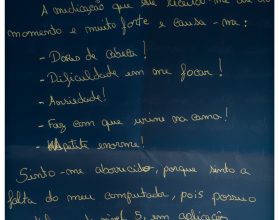 A medicação que me
momento e muito forte e causa-me:
- Dores de cabeça!
- Dificuldade em me focar!
- Ansiedade!
- Faz com que urine na cama!
- Apetite enorme!
Sinto-me aborrecido, porque sinto a
falta do meu computador, pois possuo
5, em aplicação